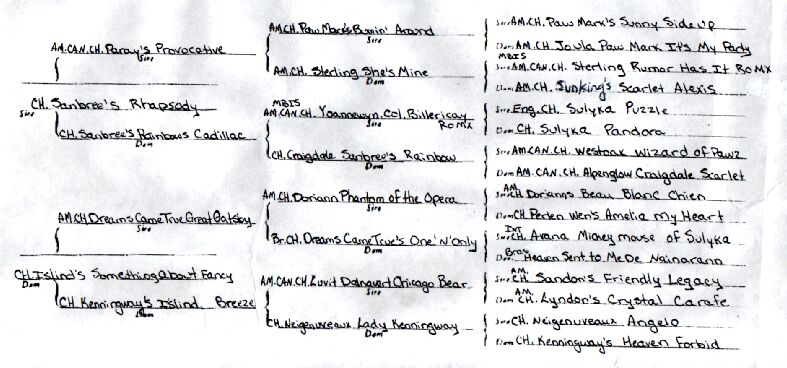 AM.CAN.CH. Paray's Provocative
Sire
CH. Sanbree's Rhapsody
Sire
CH. Sanbree's Rainbows Cadillac
Dam
AM.CH. Dreams Came True Great Gatsby
Sire
CH. Islind's Something About Fancy
Dam
CH. Kenningway's Islind Breeze
Dam
AM.CH. Paw Mark's Burnin' Around
Sire
AM.CH. Sterling She's Mine
Dam
MBIS
AM.CAN.CH. Yoannewyn Col. Billericay
Sire ROMX
CH. Craigdale Sanbree's Rainbow
Dam
AM.CH. Doriann Phantom of the Opera
Sire
Br.CH. Dreams Came True's One 'N' Only
Dam
AM.CAN.CH. Luvit Chicago Bear
Sire
CH. Neigenuveaux Lady Kenningway
Dam
Sire AM.CH. Paw Mark's Sunny Side Up
Dam AM.CH. Joula Paw Mark It's My Party
MBIS
Sire AM.CAN.CH. Sterling Rumor Has It ROMX
Dam AM.CH. Sunking's Scarlet Alexis
Sire Eng.CH. Sulyka Puzzle
Dam CH. Sulyka Pandora
Sire AM.CAN.CH. Westoak Wizard of Pawz
Dam AM.CAN.CH. Alpenglow Craigdale Scarlet
AM
Sire CH. Dorianns Beau Blanc Chien
Dam CH. Perlen Wen's Amelia My Heart
INT
Sire CH. Avana Mickey Mouse of Sulyka
Braz
Dam Heaven Sent to Me De Nainarann
AM.
Sire CH. Sandon's Friendly Legacy
AM
Dam CH. Lyndon's Crystal Carafe
Sire CH. Neigenuveaux Angelo
Dam CH. Kenningway's Heaven Forbid